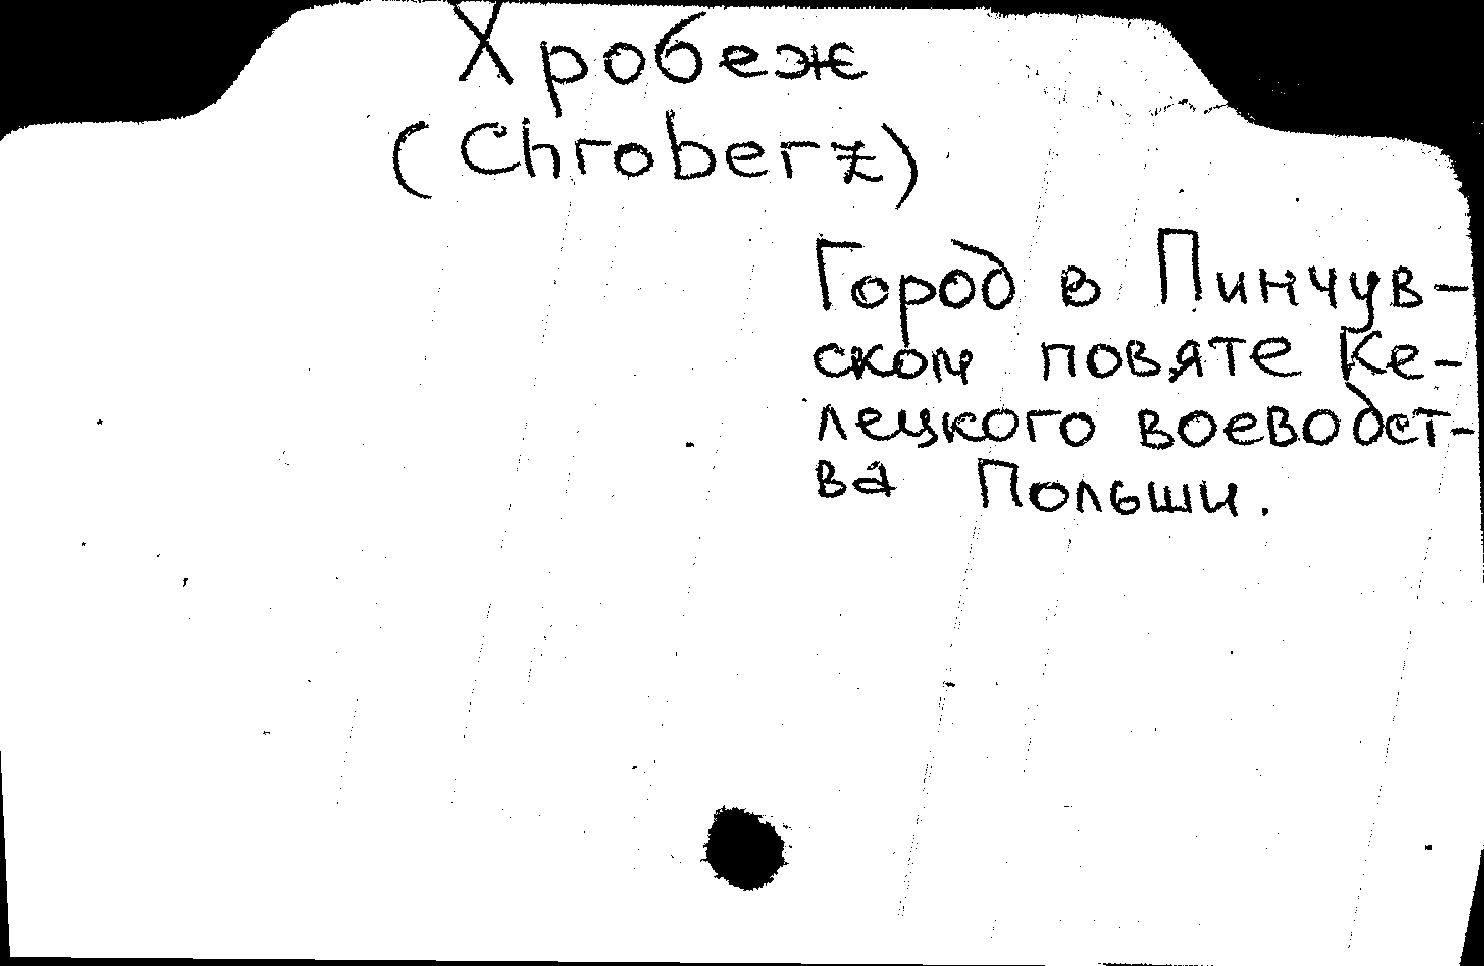 Хробеж
(Chroberz)
Город в Пинчув-
ском повяте Ке-
лецкого воеводст-
ва Польши.